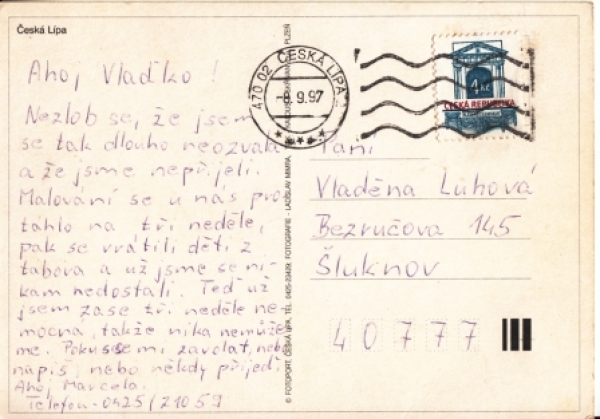 Česká Lípa
Ahoj Vlaďko!
Nezlob se, že jsem
se tak dlouho neozvala
a že jsme nepřijeli.
Malování se u nás pro
táhlo na tři neděle,
pak se vrátili děti z
tabora a už jsme se ni-
kam nedostali. Teď už
jsem zase tři neděle ne-
mocna, takže nika nemůže
me. Pokus se mi zavolat, nebo
napiš, nebo někdy přijeď.
Ahoj Marcela.
Telefon - 0425/21059
© FOTOPORT, ČESKÁ LÍPA, TEL. 0425-22429. FOTOGRAFIE - LADISLAV MIMRA, PLZEŇ
470 02 ČESKÁ LÍPA
-8.9.97
4 Kč
ČESKÁ REPUBLIKA
Paní
Vladěna Luhová
Bezručova 145
Šluknov
40777